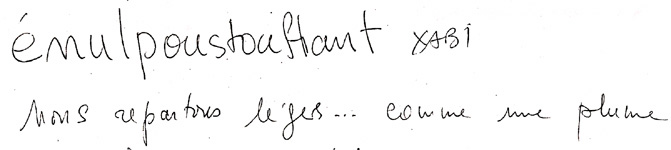 émulpoustouflant XABI
Nous repartons légers... comme une plume